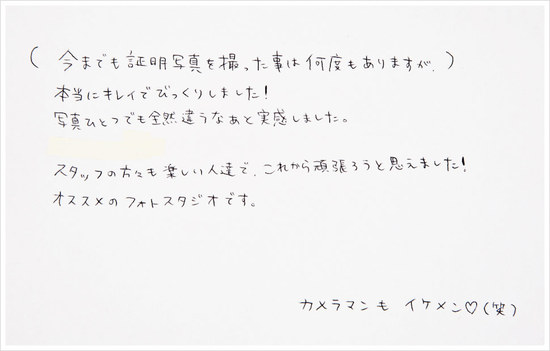 (今までも証明写真を撮った事は何度もありますが、)
本当にキレイでびっくりしました!
写真ひとつでも全然違うなあと実感しました。
スタッフの方々も楽しい人達で、これから頑張ろうと思えました!
オススメのフォトスタジオです。
カメラマンも イケメン♡(笑)